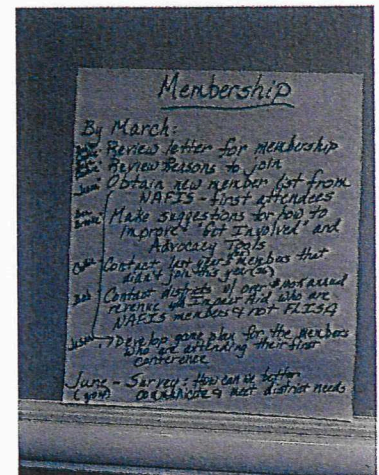 Membership
By March:
Review letter for membership
Review Reasons to join
Obtain new member list from
NAFIS - first attendees
Make suggestions for how to
improve "Get Involved" and
Advocacy Tools
Contact last year's members that
didn't join this year
Contact districts w/ over annual
revenue Impact Aid who are
NAFIS members & not FLISA
Develop game plan for the members
who are attending their first
conference
June - Survey: How can we better
communicate & meet district needs